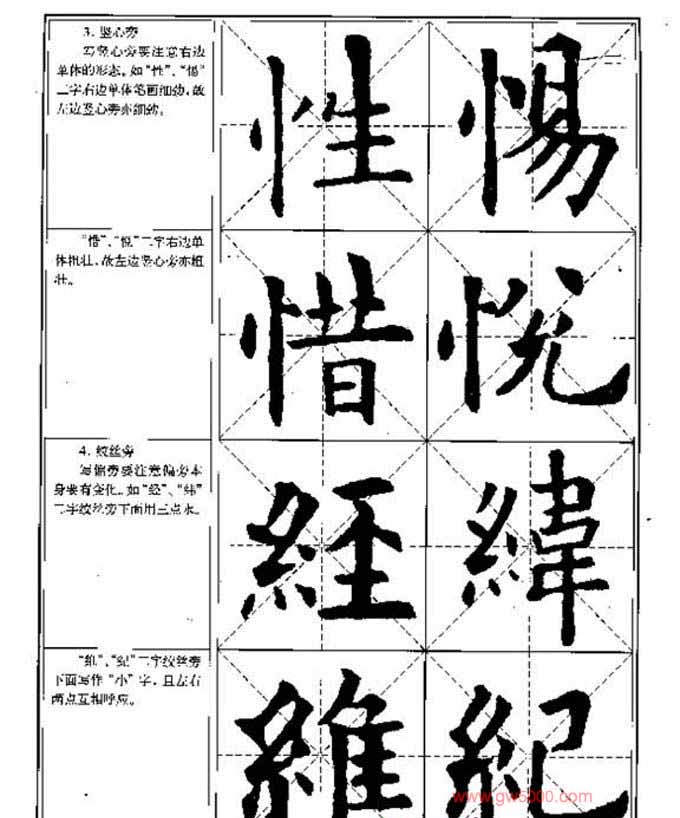 3. 竖心旁
写竖心旁要注意右边
单体的形态。如“性”、“惕”
二字右边单体笔画细劲,故
左边竖心旁亦细劲。
性 惕
“惜”、“悦”二字右边单
体粗壮,故左边竖心旁亦粗
壮。
惜 悦
4. 绞丝旁
写偏旁要注意偏旁本
身要有变化。如“经”、“纬”
二字绞丝旁下面用三点水。
經 緯
“维”、“纪”二字绞丝旁
下面写作“小”字,且左右
两点互相呼应。
維 紀
www.gw5000.com